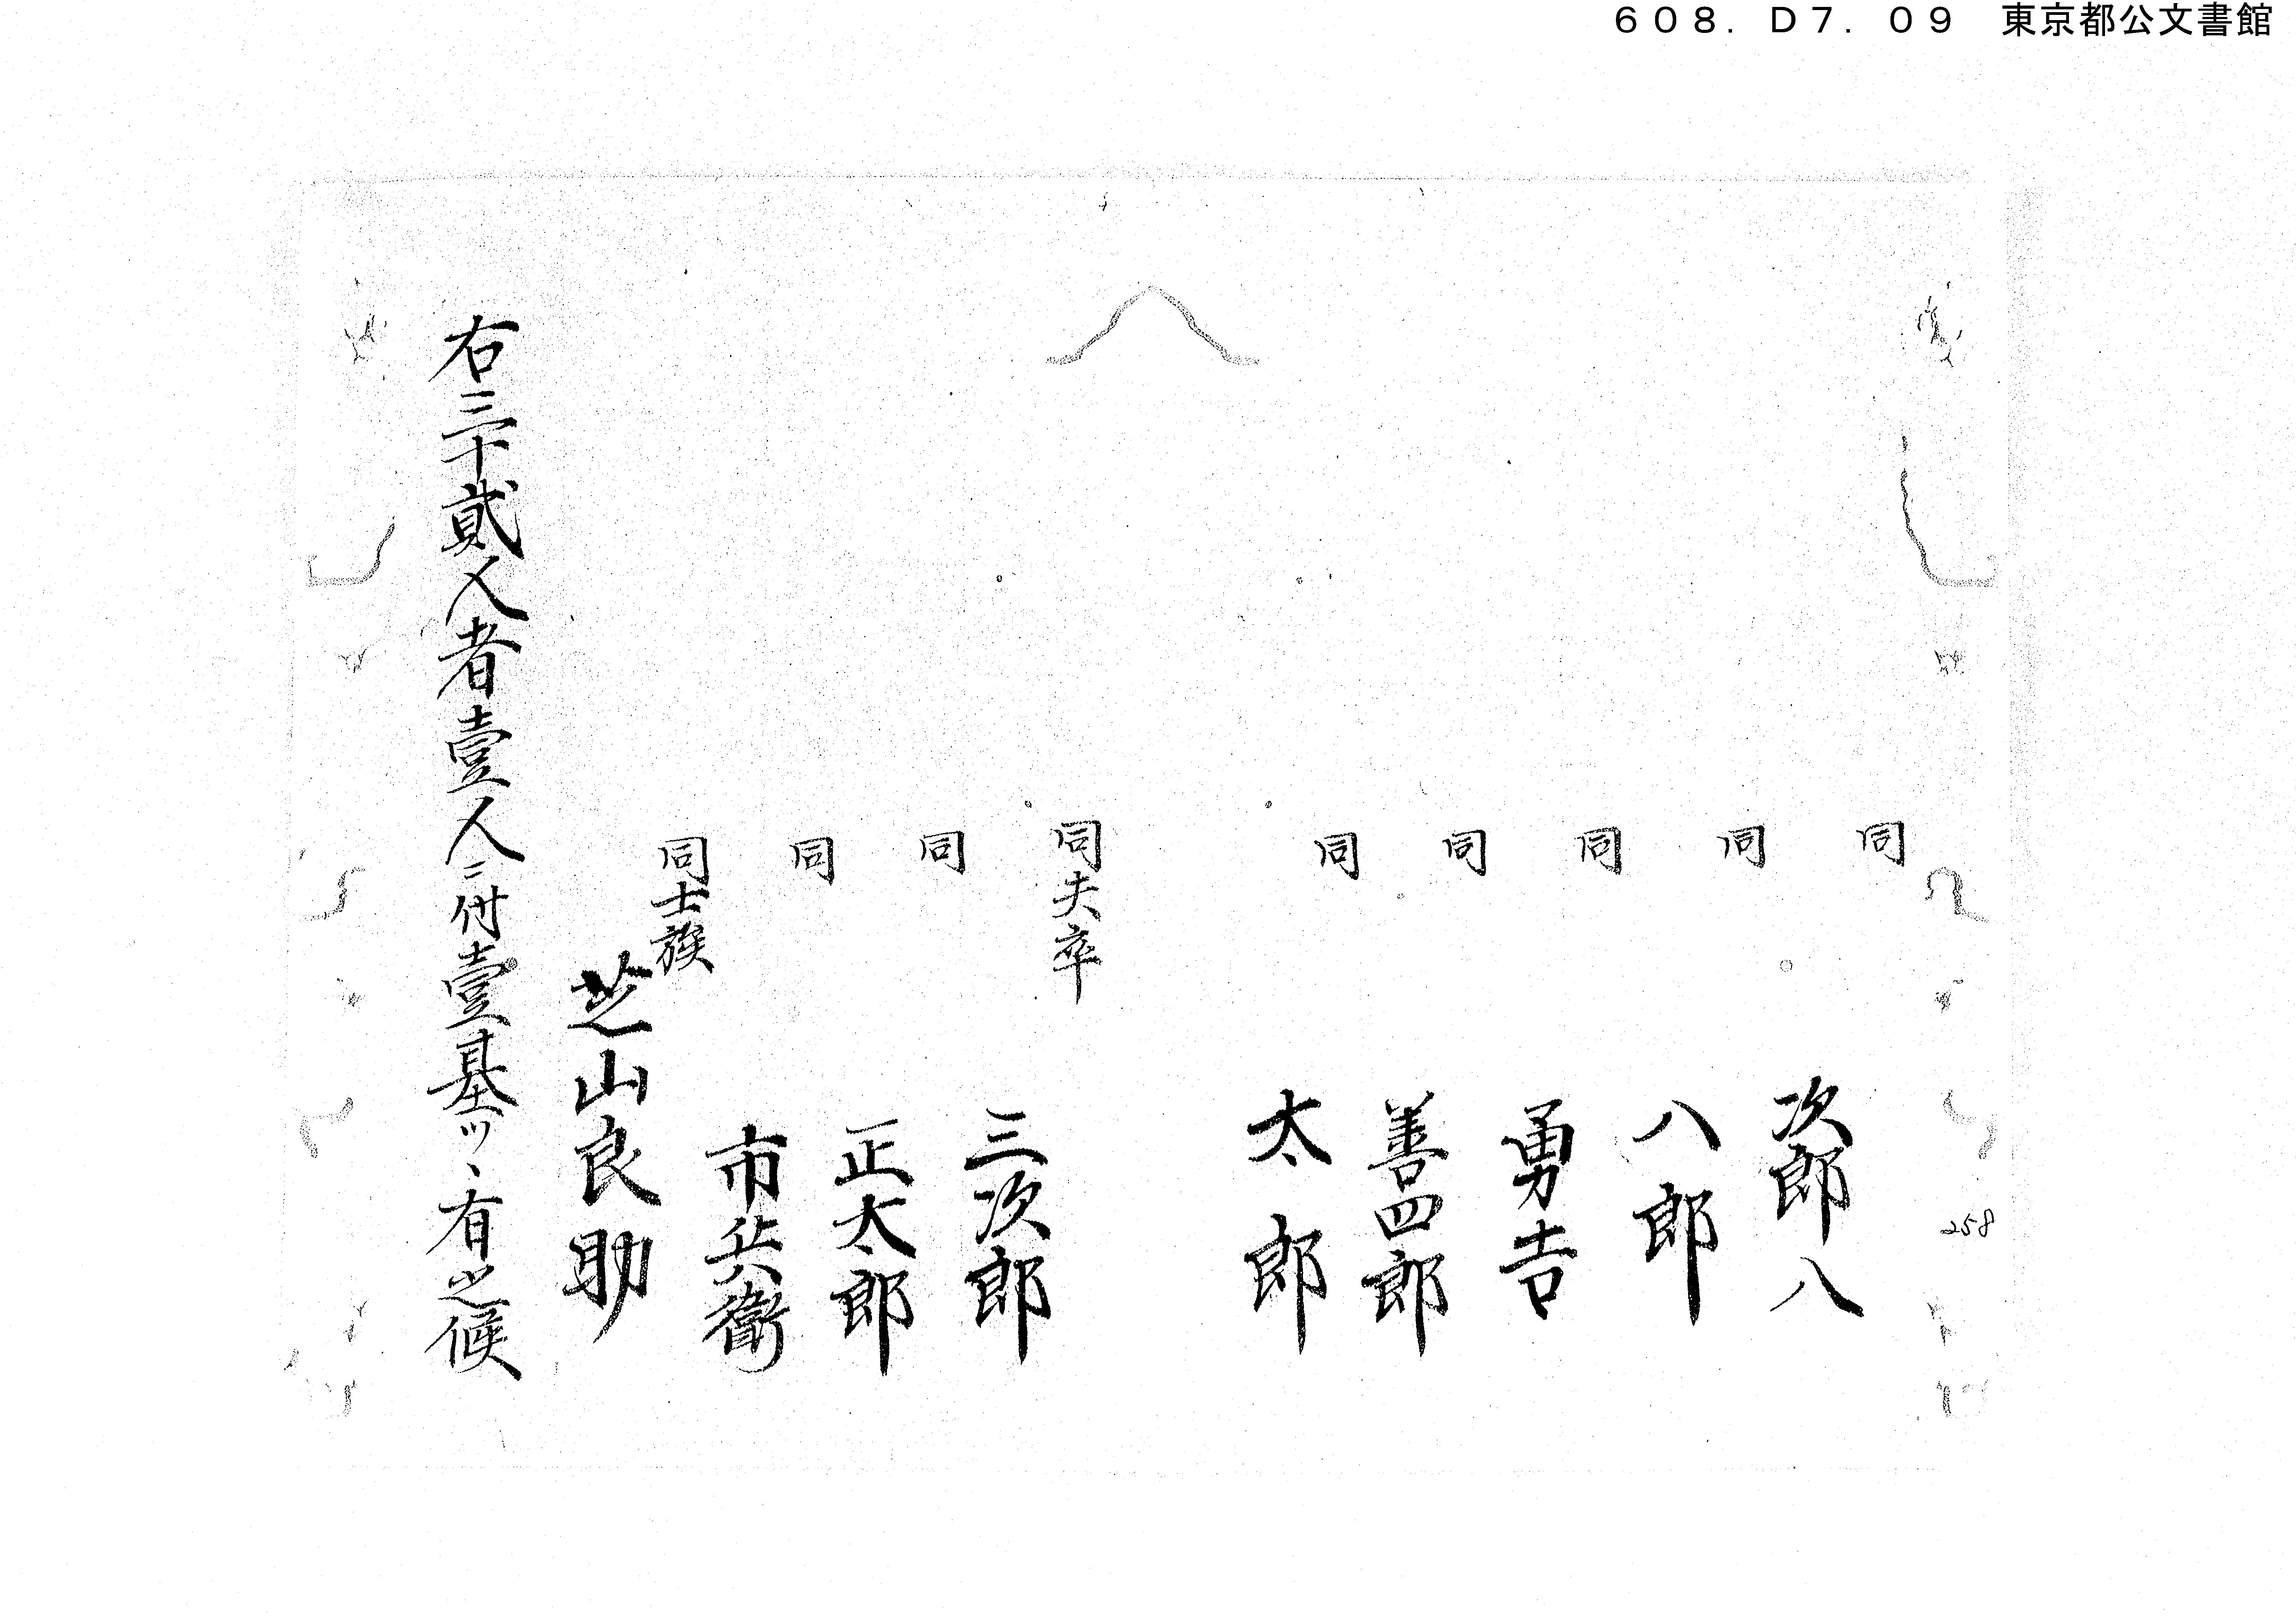 608. D7. 09 東京都公文書館
同
次郎八
同
八郎
同
勇吉
同
善四郎
同
太郎
同夫卒
三次郎
同
正太郎
同
市兵衛
同士族
芝山良助
右三十貳人者壹人ニ付壹基ツヽ有之候
258